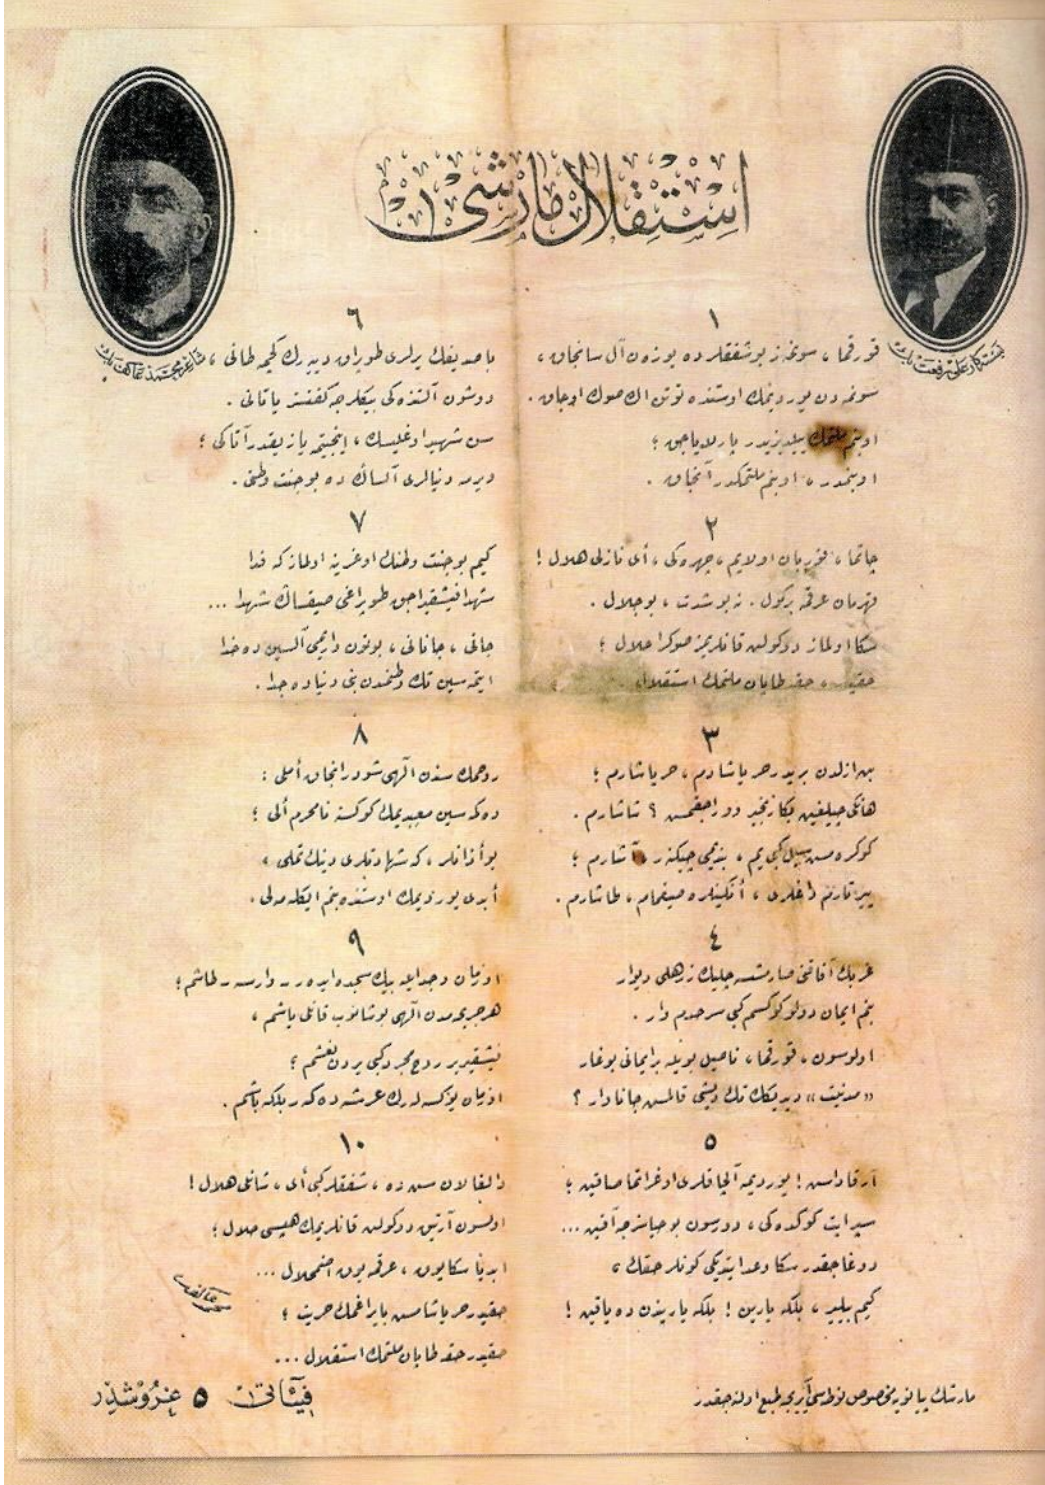 استقلال مارشی
شاعر محمد عاكف بك
بسته‌كار علی رفعت بك
١
قورقما، سونمز بو شفقلرده یوزن آل سانجاق،
سونمه‌دن یوردیمك اوستنده توتن اڭ صوڭ اوجاق.
او بنم ملتمك ییلدیزیدر پارلایاجق؛
او بنمدر، او بنم ملتمكدر آنجاق.
٢
چاتما، قوربان اولایم، چهره‌كی، أی نازلی هلال!
قهرمان عرقمه بر كول. نه بو شدت، بو جلال.
سكا اولماز دوكولن قانلریمز صوكرا حلال؛
حقیدر، حقه طاپان ملتمك استقلال.
٣
بن ازلدن بریدر حر یاشادم، حر یاشارم؛
هانكی چیلغین بكا زنجیر ووراجقمش؟ شاشارم.
كوكره‌مش سیل كبی یم، بندمی چیكنر، آشارم؛
ییرتارم داغلری، أنكینلره صیغمام، طاشارم.
٤
غربك آفاقنی صارمشسه چلیك زرهلی دیوار
بنم ایمان دولو كوكسم كبی سرحدم وار.
اولوسون، قورقما، ناصیل بویله بر ایمانی بوغار
«مدنیت» دیدیكك تك دیشی قالمش جاناوار؟
٥
آرقاداش! یوردیمه آلچاقلری اوغراتما صاقین؛
سپر ایت كوكده‌كی، دورسون بو حیاسزجه آقین...
دوغاجقدر سكا وعد ایتدیكی كونلر حقك؛
كیم بیلیر، بلكه یارین! بلكه یاریندن ده یاقین!
٦
باصدیغك یرلری طوپراق دییه‌رك كچمه طانی،
دوشون آلتنده‌كی بیكلرجه كفنسز یاتانی.
سن شهید اوغلیسك، اینجیتمه یازیقدر آتاكی؛
ویرمه دنیالری آلساڭ ده بو جنت وطنی.
٧
كیم بو جنت وطنك اوغرینه اولماز كه فدا
شهدا فیشقیراجق طوپراغی صیقساڭ شهدا...
جانی، جانانی، بوتون واریمی آلسین ده خدا
ایتمه‌سین تك وطنمدن بنی دنیاده جدا.
٨
روحمك سندن الهی شودر انجاق أملی:
دكمه‌سین معبدیمك كوكسنه نامحرم ألی؛
بو أذانلر، كه شهادتلری دینك تملی،
أبدی یوردیمك اوستنده بنم ایكله‌ملی.
٩
او زمان وجد ایله بیك سجده ایدر ـ وارسه ـ طاشم؛
هر جریحه‌مدن الهی بوشانوب قانلی یاشم،
فیشقیریر روح مجرد كبی یردن نعشم؛
او زمان یوكسله‌رك عرشه دكر بلكه باشم.
١٠
دالغالان سن ده، شفقلر كبی أی، شانلی هلال!
اولسون آرتق دوكولن قانلریمك هپسی حلال؛
ابدیا سكا یوق، عرقمه یوق اضمحلال...
حقیدر حر یاشامش بایراغمك حریت؛
حقیدر حقه طاپان ملتمك استقلال...
محمد عاكف
مارشك پیانویه مخصوص نوطه‌سی آیریجه طبع اولنه‌جقدر
فیئاتی ٥ غروشدر